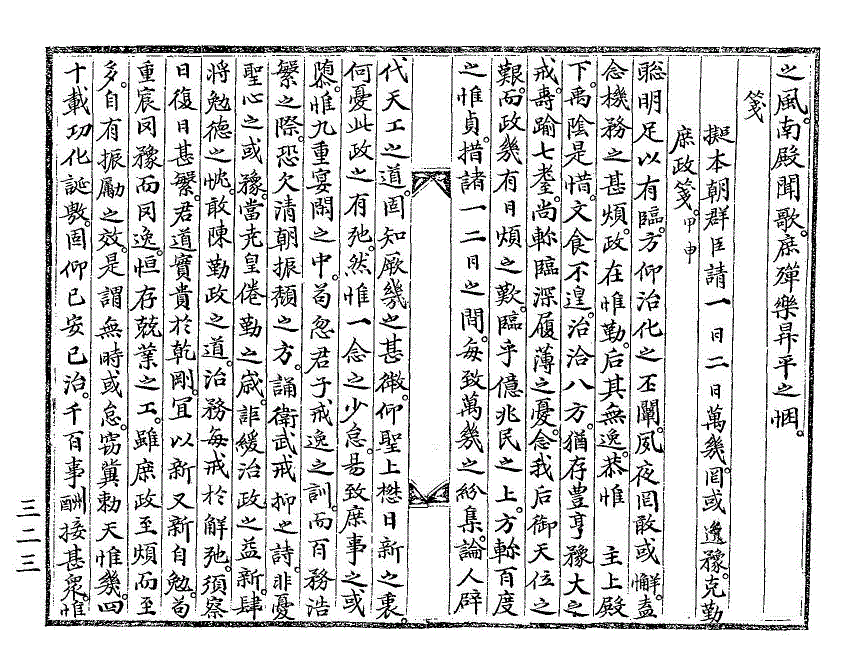 之風。南殿聞歌。庶殫樂昇平之悃。
箋
擬本朝群臣請一日二日萬幾罔或逸豫。克勤
庶政箋。甲申
聡明足以有臨。方仰治化之丕闡。夙夜罔敢或懈。盍
念機務之甚煩。政在惟勤。后其無逸。恭惟 主上殿
下。禹陰是惜。文食不遑。治洽八方。猶存豊亨豫大之
戒。壽踰七耋。尚軫臨深履薄之憂。念我后御天位之
艱。而政幾有日煩之歎。臨乎億兆民之上。方軫百度
之惟貞。措諸一二日之間。每致萬幾之紛集。論人辟
代天工之道。固知厥幾之甚微。仰聖上懋日新之衷。
何憂此政之有弛。然惟一念之少怠。易致庶事之或
隳。惟九重宴閒之中。苟忽君子戒逸之訓。而百務浩
繁之際。恐欠清朝振頹之方。誦衛武戒抑之詩。非憂
聖心之或豫。當尭皇倦勤之歲。詎緩治政之益新。肆
將勉德之忱。敢陳勤政之道。治務每戒於解弛。須察
日復日甚繁。君道實貴於乾剛。冝以新又新自勉。苟
重宸罔豫而罔逸。恒存兢業之工。雖庶政至煩而至
多。自有振勵之效。是謂無時或怠。窃冀勅天惟幾。四
十載功化誕敷。固仰已安已治。千百事酬接甚衆。惟
三二三